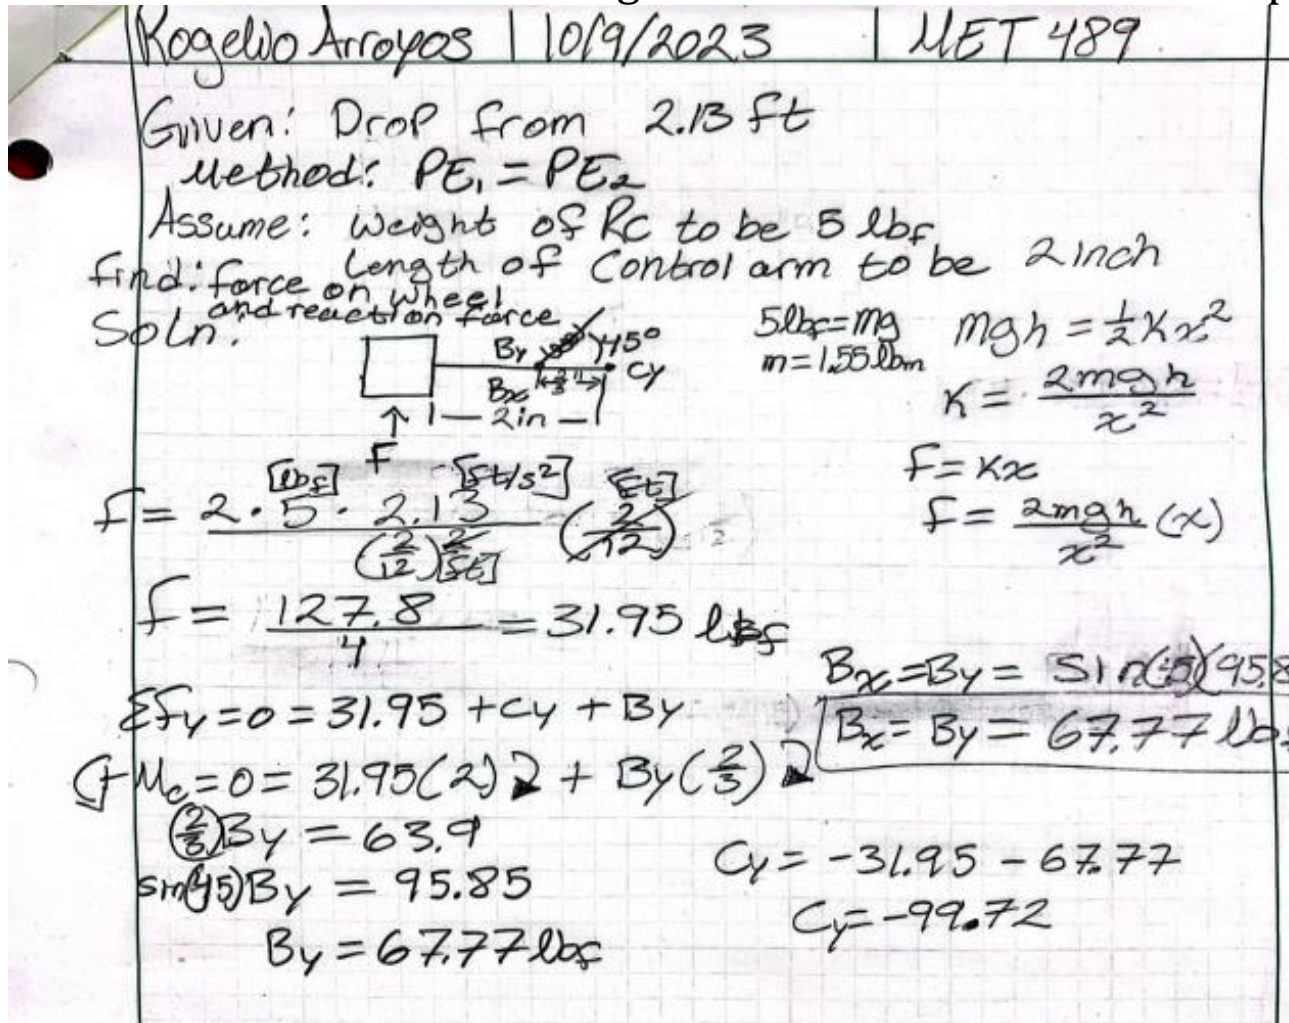 Rogelio Arroyos | 10/9/2023 | MET 489
Given: Drop from 2.13 ft
Method: PE₁ = PE₂
Assume: Weight of RC to be 5 lbf
Length of Control arm to be 2 inch
find: force on wheel
and reaction force
Soln:
By 45° Cy
Bx 2/3"
2in
F
5lbf = mg
m = 1.55 lbm
mgh = 1/2 Kx²
K = 2mgh / x²
F = Kx
F = 2mgh / x² (x)
[lbf] [ft/s²] [ft]
F = 2 · 5 · 2.13 / (2/12)² [ft] (2/12)
F = 127.8 / 4 = 31.95 lbf
ΣFy = 0 = 31.95 + Cy + By
+ Mc = 0 = 31.95(2) + By(2/3)
(2/3)By = 63.9
sin(45)By = 95.85
By = 67.77 lbf
Bx = By = Sin(45)(95.8
Bx = By = 67.77 lb
Cy = -31.95 - 67.77
Cy = -99.72